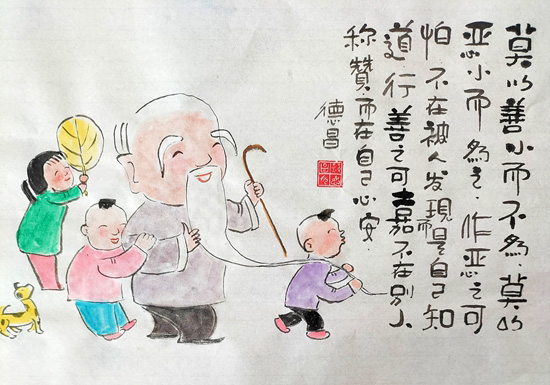 莫以善小而不為.莫以
恶小而為之.作恶之可
怕不在被人发現而是自己知
道.行善之可嘉不在别人
称赞.而在自己心安
德昌